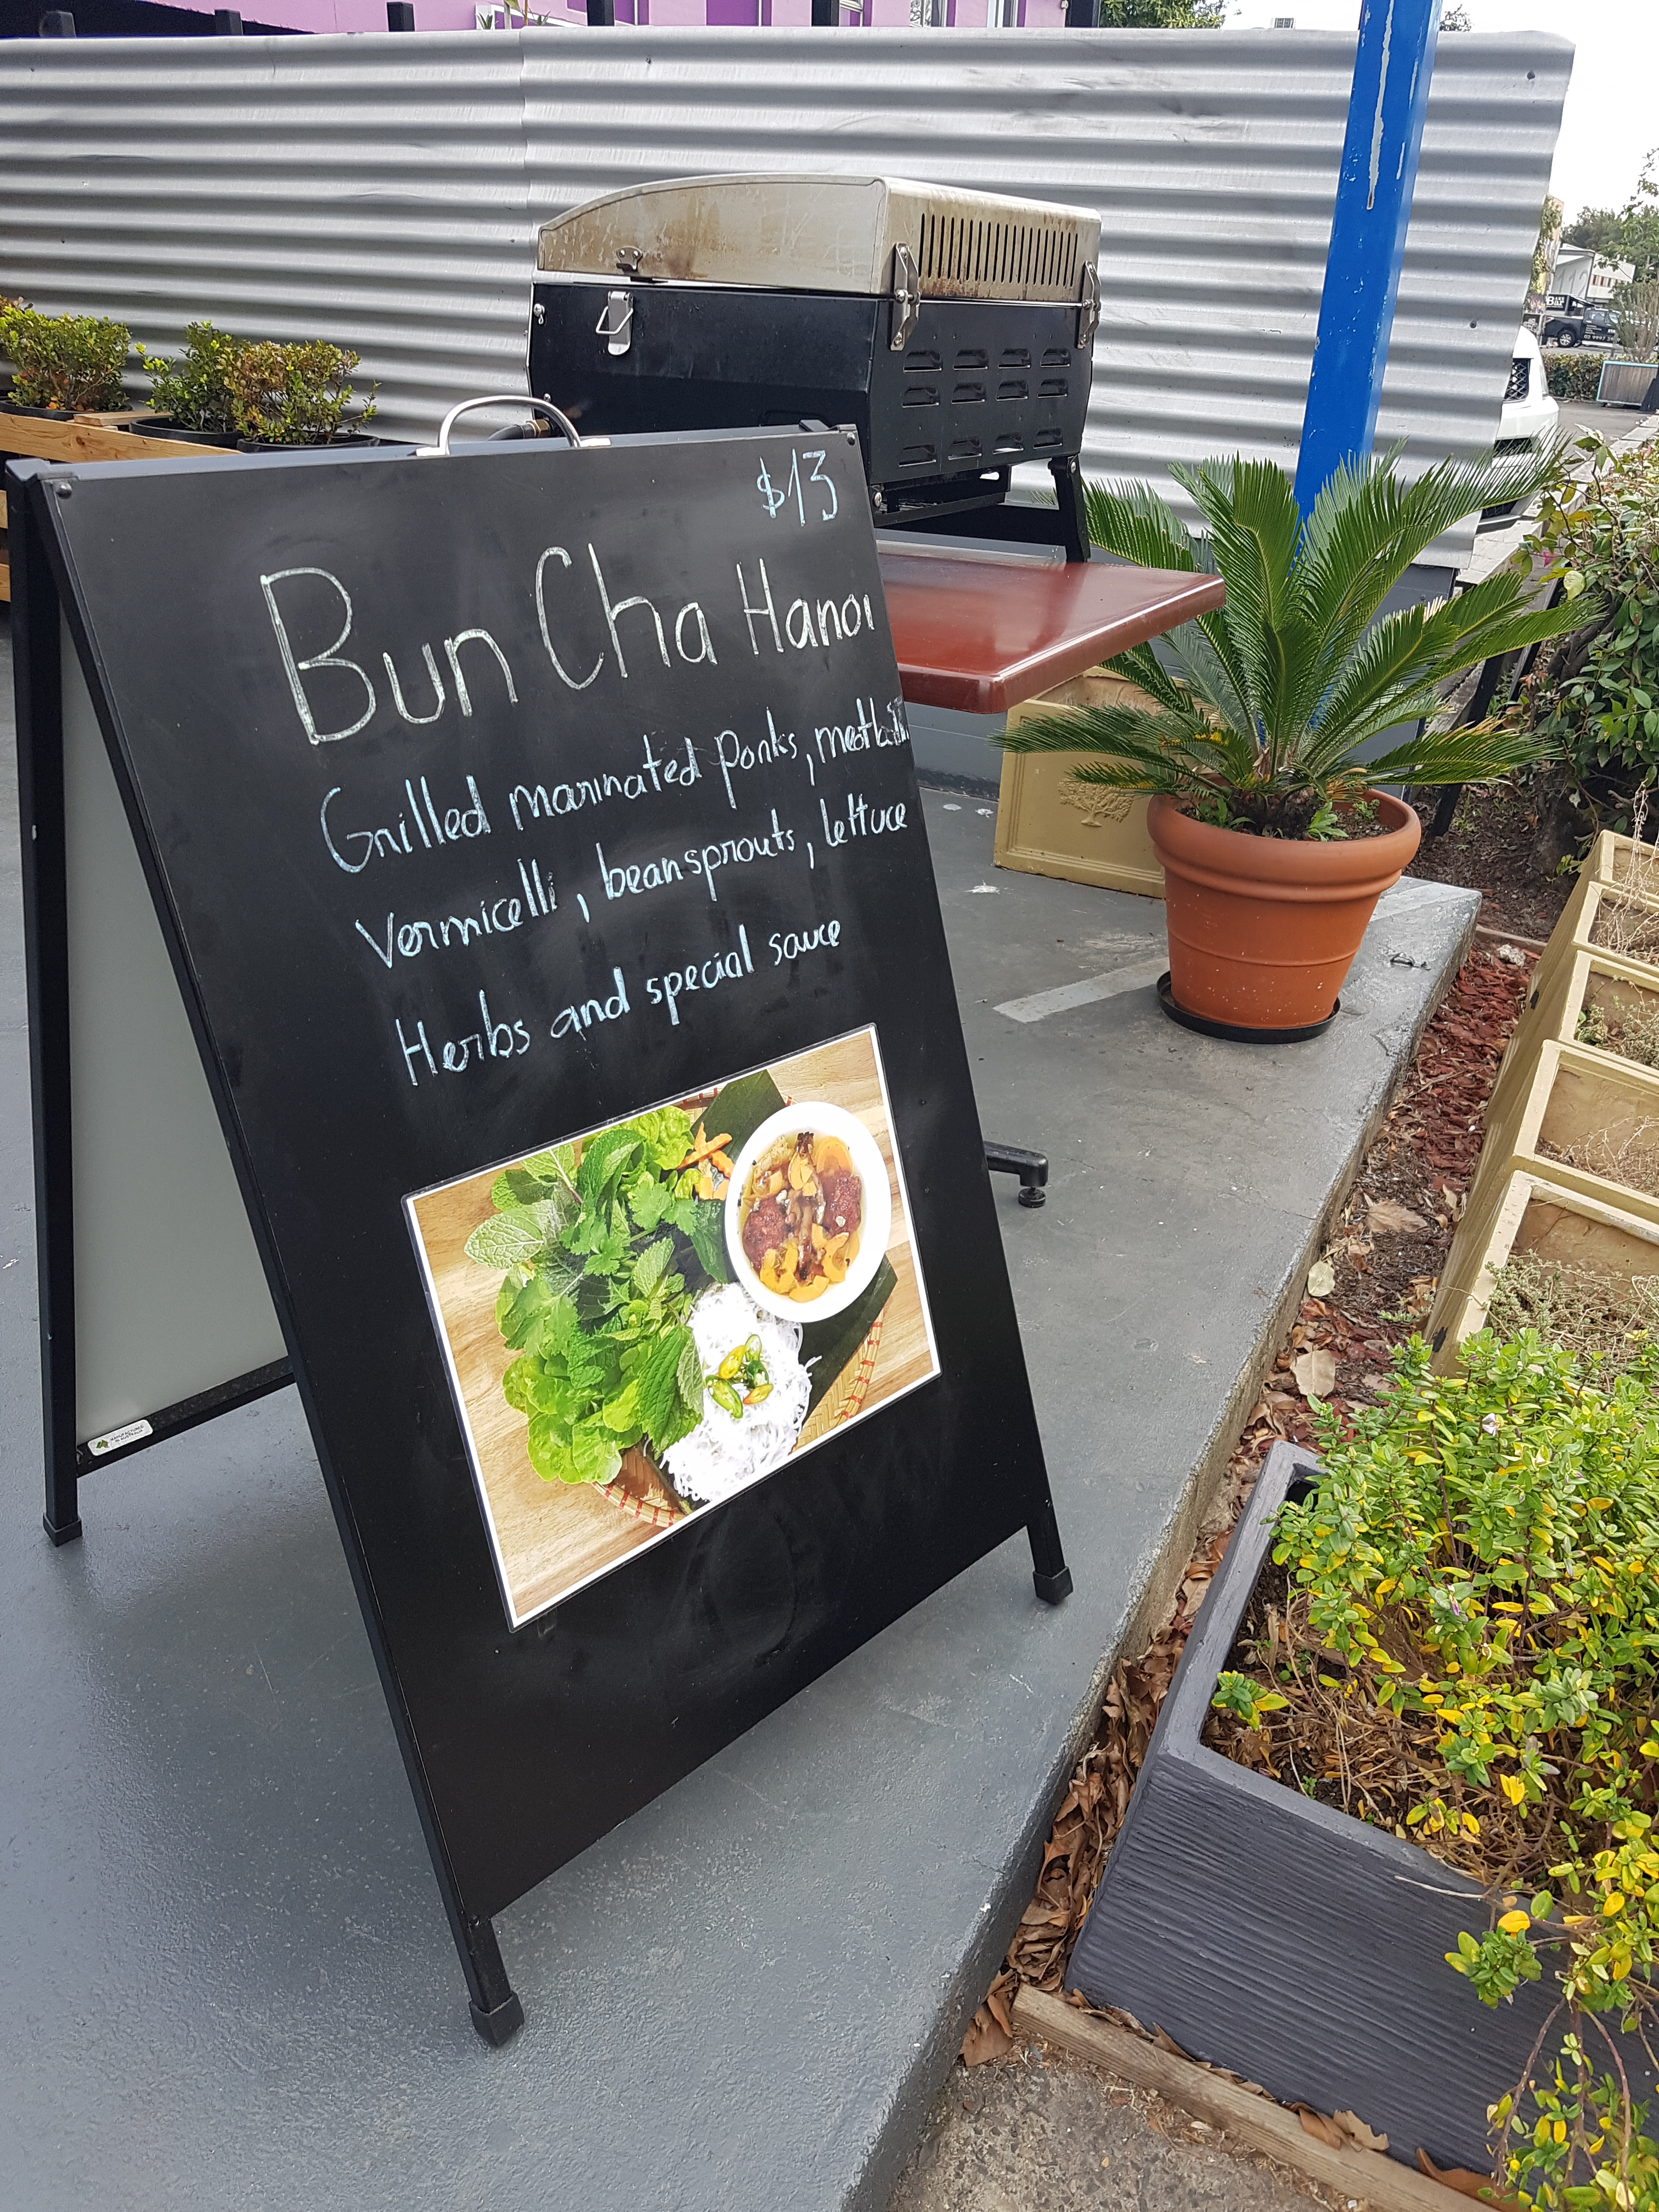 $13
Bun Cha Hanoi
Grilled marinated porks, meatballs
vermicelli, beansprouts, lettuce
Herbs and special sauce
MANUFACTURED
IN AUSTRALIA